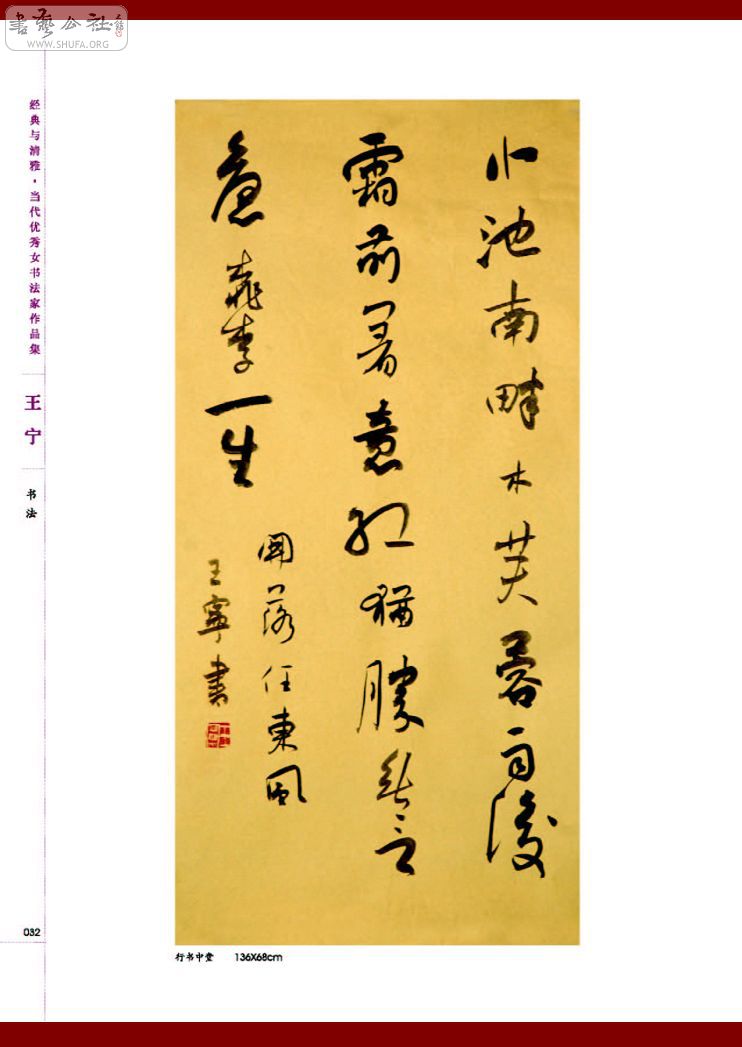 書藝公社
WWW.SHUFA.ORG
经典与清雅·当代优秀女书法家作品集
王宁
书法
小池南畔木芙蓉雨後
霜前著意紅猶勝無言
桃李一生
開落任東風
王寧書
032
行书中堂 136X68cm